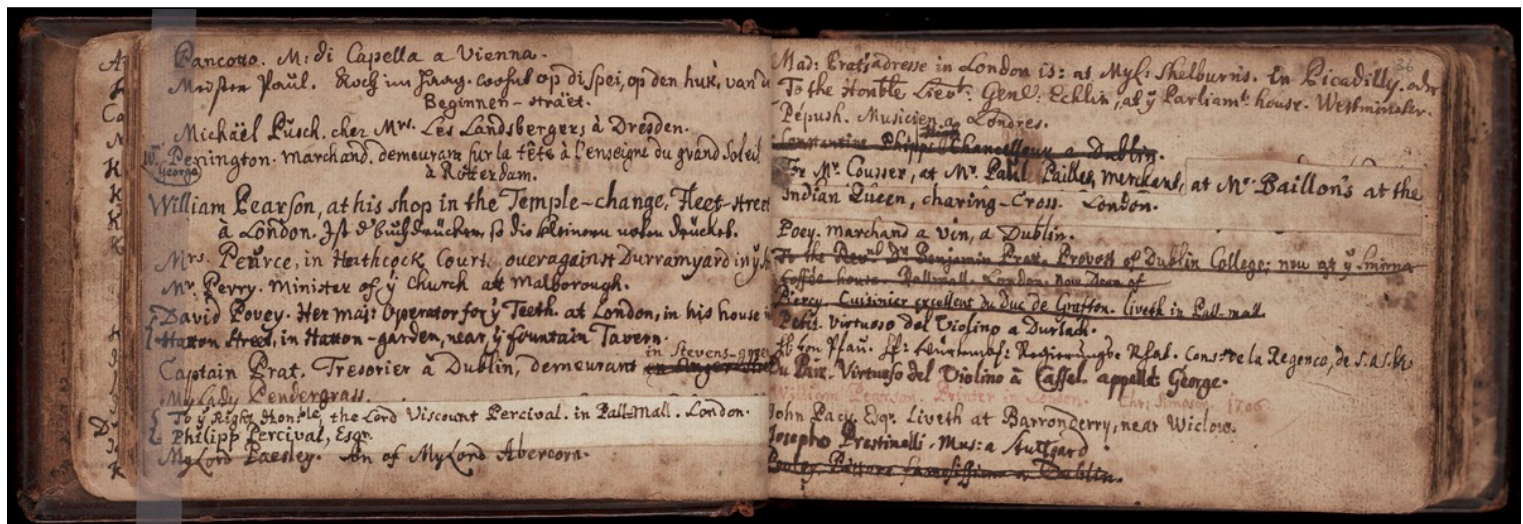 Pancotto. M: di Capella a Vienna.
Meister Paul. Koch im Haag. op di spei, op den huk, van
Beginnen-sträet.
Michäel Püsch. chez Mrs. Les Landsbergers à Dresden.
Wm Penington. marchand. demeurant sur la tête à l'enseigne du grand Soleil
George
à Rotterdam.
William Pearson, at his shop in the Temple-change, Fleet-street
à London. Ist d' buchdrücker, so die kleinern noten drücket.
Mrs. Peurce, in Hathcock Court. overagainst Durramyard in ye
Mr. Perry. Minister of ye church att Malborough.
David Povey. Her maj: Operator for ye Teeth. at London, in his house
Hatton Street, in Hatton-garden, near ye fountain Tavern.
in Stevens-green
Captain Prat. Tresorier à Dublin, demeurant
My Lady Pendergrass.
To ye Right Honble, the Lord Viscount Percival. in Pall-Mall. London.
Philipp Percival, Esqr.
My Lord Paesley. Son of My Lord Abercorn.
36
Mad: Prats adresse in London is: at Mys: Shelburn's. in Picadilly. oder
To the Honble Lieut: Genl: Ecklin, at ye Parliamt: house. Westminster.
Pépush. Musicien a Londres.
Constantine Phipps Chancelleur a Dublin.
For Mr. Cousser, at Mr. Paul Pailles, merchant, at Mr. Baillon's at the
Indian Queen, charing-Cross. London.
Poey. marchand a vin, a Dublin.
To the Revnd Dr Benjamin Prat. Provost of Dublin College; now at ye Smirna
Coffée house. Pallmall. London. now Dean of
Piercy. Cuisinier excellent du Duc de Grafton. liveth in Pall mall
Petit. Virtuoso del Violino a Durlach.
von Pfau. Consr: de la Regence, de S.A.S.
Du Pain. Virtuoso del Violino à Cassel. appellé George.
William Pearson. Printer in London. Chr: Simpson 1706
John Pacy. Esqr. Liveth at Barronderry, near Wiclow.
Josepho Prestinelli. Mus: a Stuttgard.
Pooley. Pittore famosissimo a Dublin.